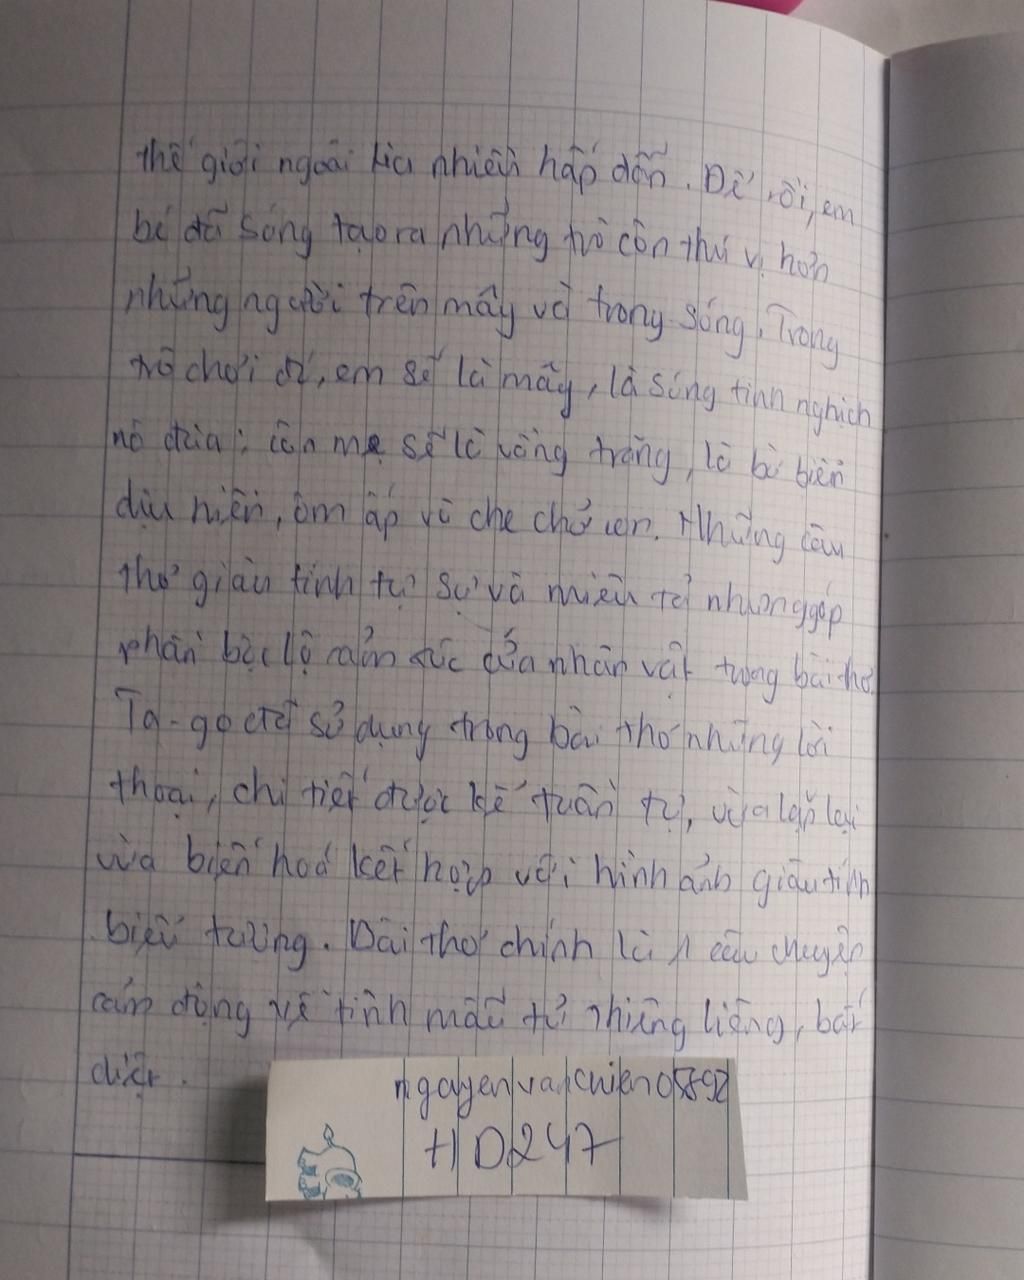 thế giới ngoài kia nhiều hấp dẫn. Để rồi, em
bé đã sáng tạo ra những trò còn thú vị hơn
những người trên mây và trong sóng. Trong
trò chơi đó, em sẽ là mây, là sóng tinh nghịch
nô đùa; còn mẹ sẽ là vầng trăng, là bờ biển
dịu hiền, ôm ấp và che chở con. Những câu
thơ giàu tính tự sự và miêu tả nhưng góp
phần bộc lộ cảm xúc của nhân vật trong bài thơ.
Ta-go đã sử dụng trong bài thơ những lời
thoại, chi tiết được kể tuần tự, vừa lặp lại
vừa biến hoá kết hợp với hình ảnh giàu tính
biểu tượng. Bài thơ chính là 1 câu chuyện
cảm động về tình mẫu tử thiêng liêng, bất
diệt.
ngayenvanchien05892
HD247